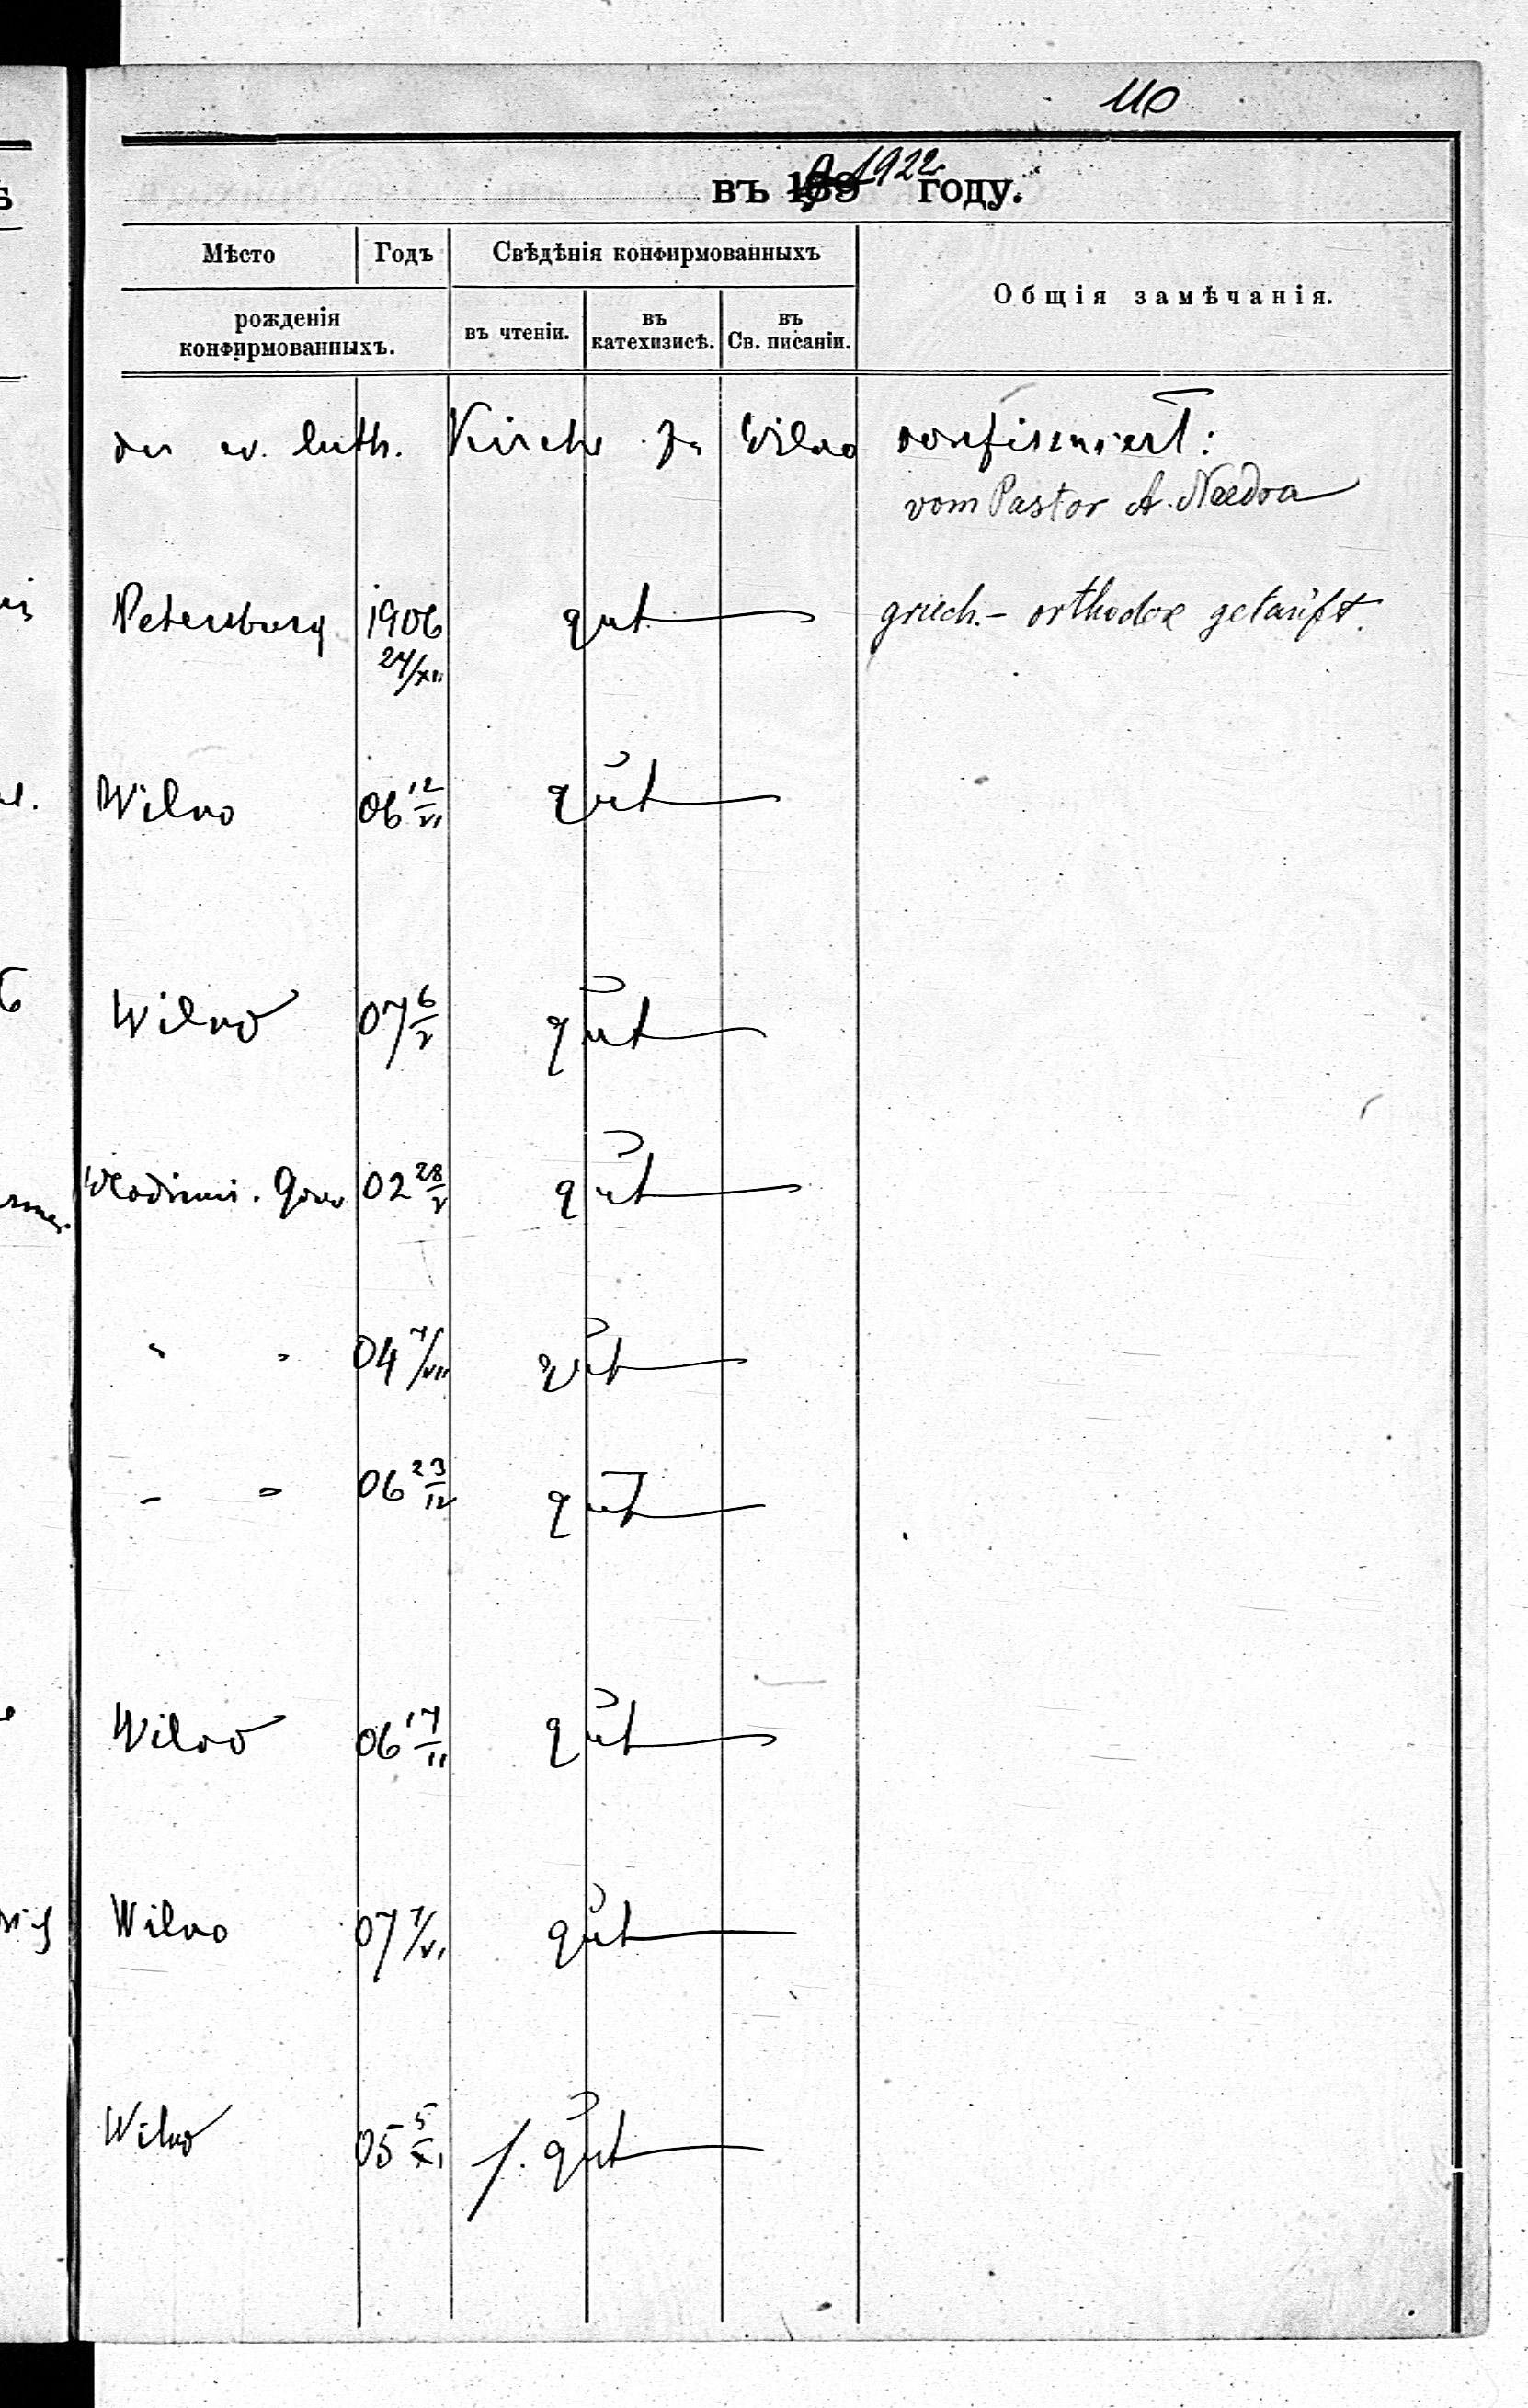 110
въ 189 1922 году.
Мѣсто Годъ Свѣдѣнія конфирмованныхъ Общія замѣчанія.
рожденія конфирмованныхъ. въ чтеніи. въ катехизисѣ. въ Св. писаніи.
der ev. luth. Kirche zu Wilno konfirmiert:
vom Pastor A. Needra
Petersburg 1906 gut griech.- orthodox getauft.
24/XII
Wilno 06 12/VI gut
Wilno 07 6/V gut
Wladimir. Gouv 02 28/V gut
" " 04 7/VII gut
" " 06 23/12 gut
Wilno 06 17/II gut
Wilno 07 7/VI gut
Wilno 05 5/XI s. gut